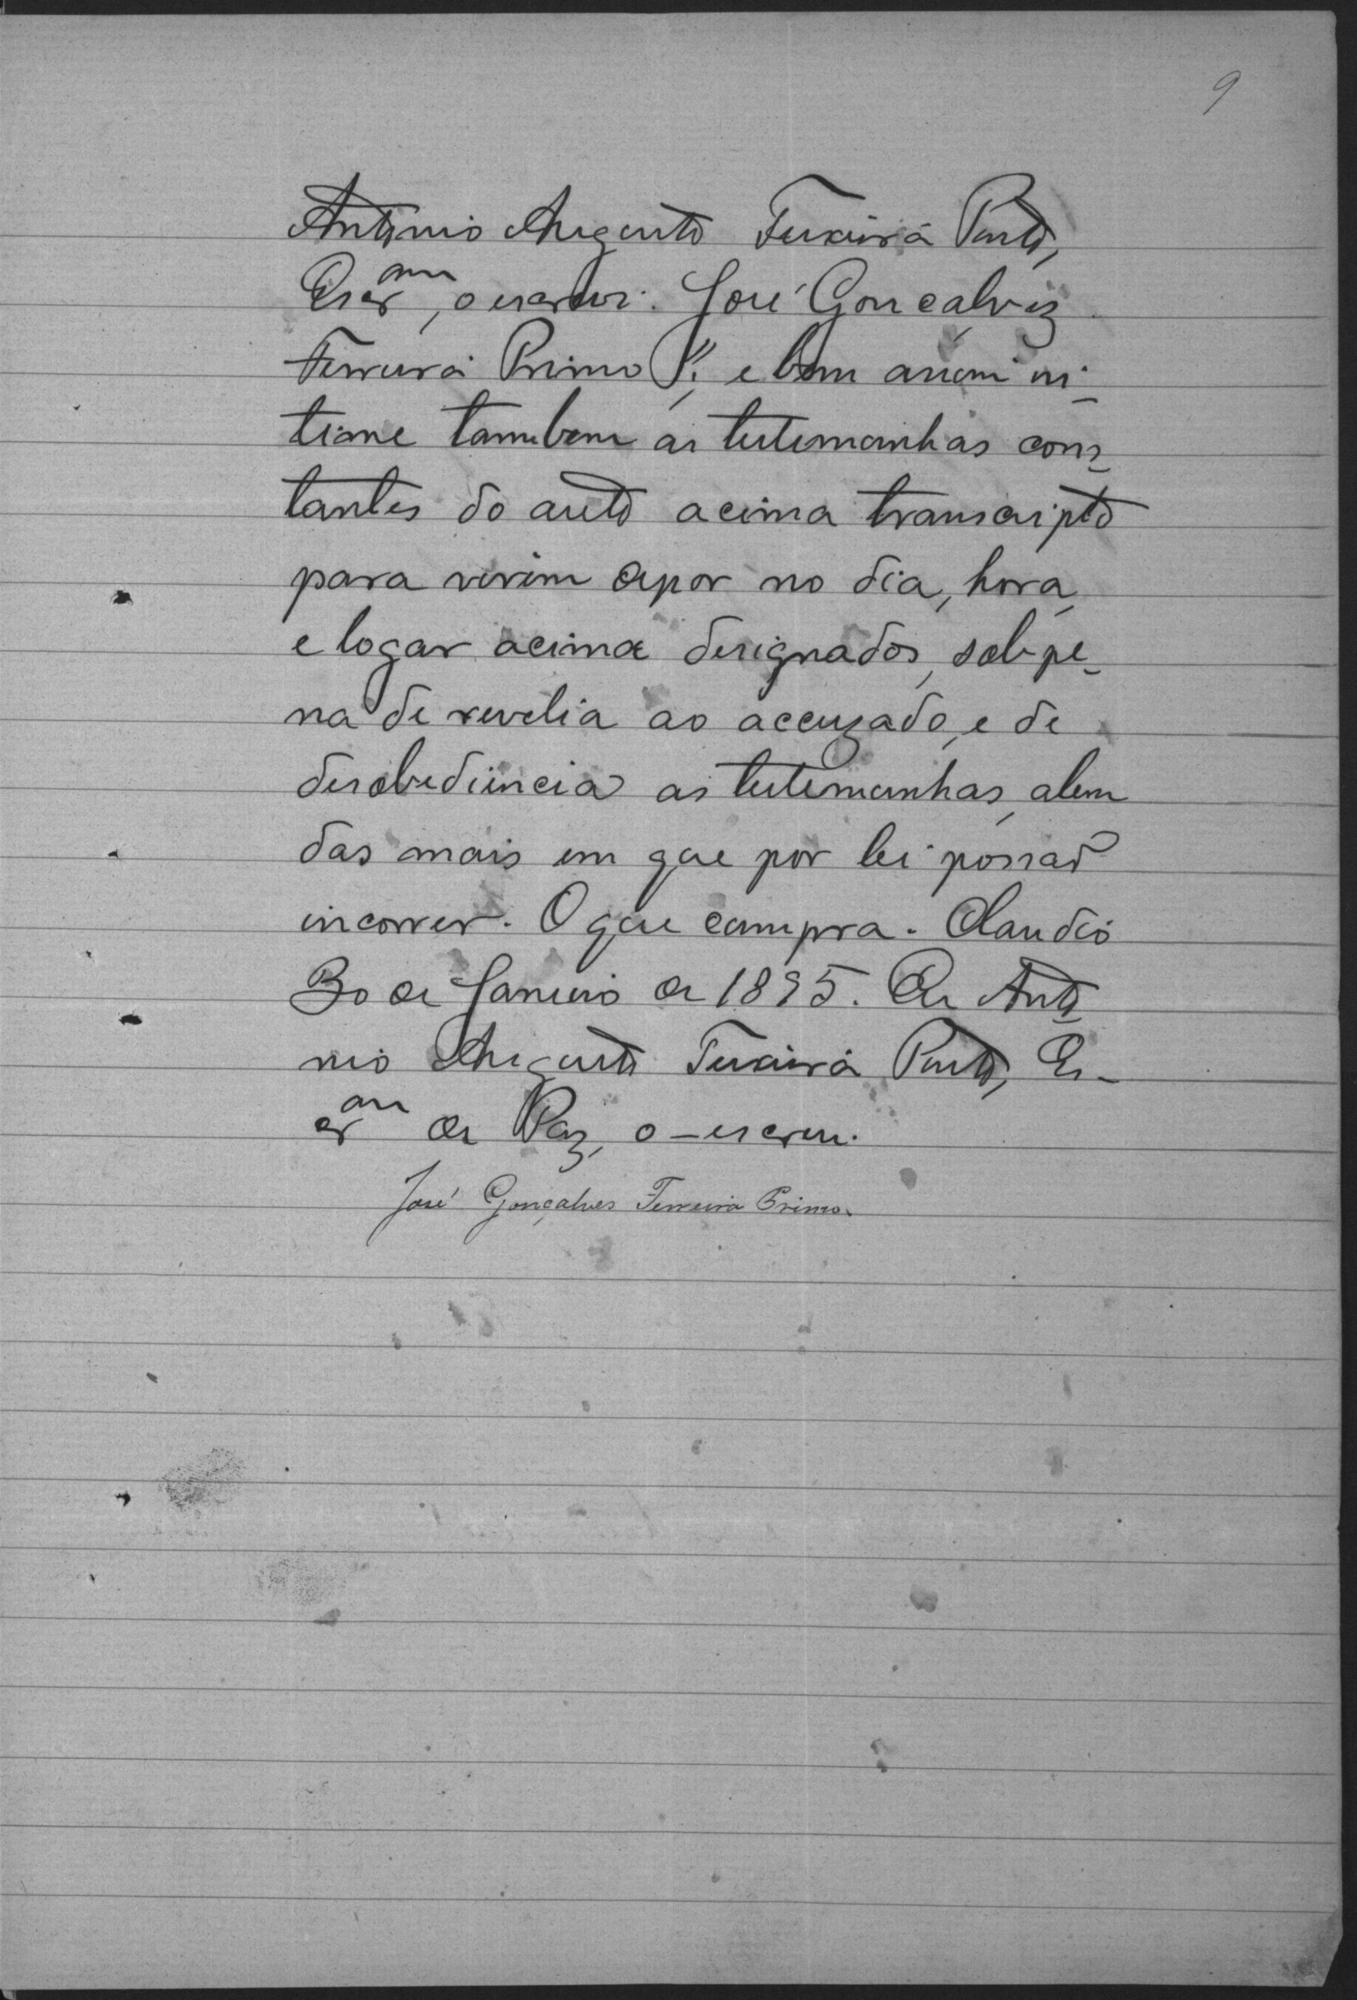 9
Antonio Augusto Teixeira Pinto,
Escr.am, o escrevi. José Gonçalves
Ferreira Primo P.", e bem assim in-
time tambem as testemunhas cons-
tantes do auto acima transcripto
para virem depor no dia, hora,
e logar acima designados, sob pe-
na de revelia ao accuzado, e de
desobediencia as testemunhas, alem
das mais em que por lei possaõ
incorrer. O que cumpra. Claudio
30 de Janeiro de 1895. Eu Anto
nio Augusto Teixeira Pinto, Es-
cram de Paz, o-escrevi.
José Gonçalves Ferreira Primo.